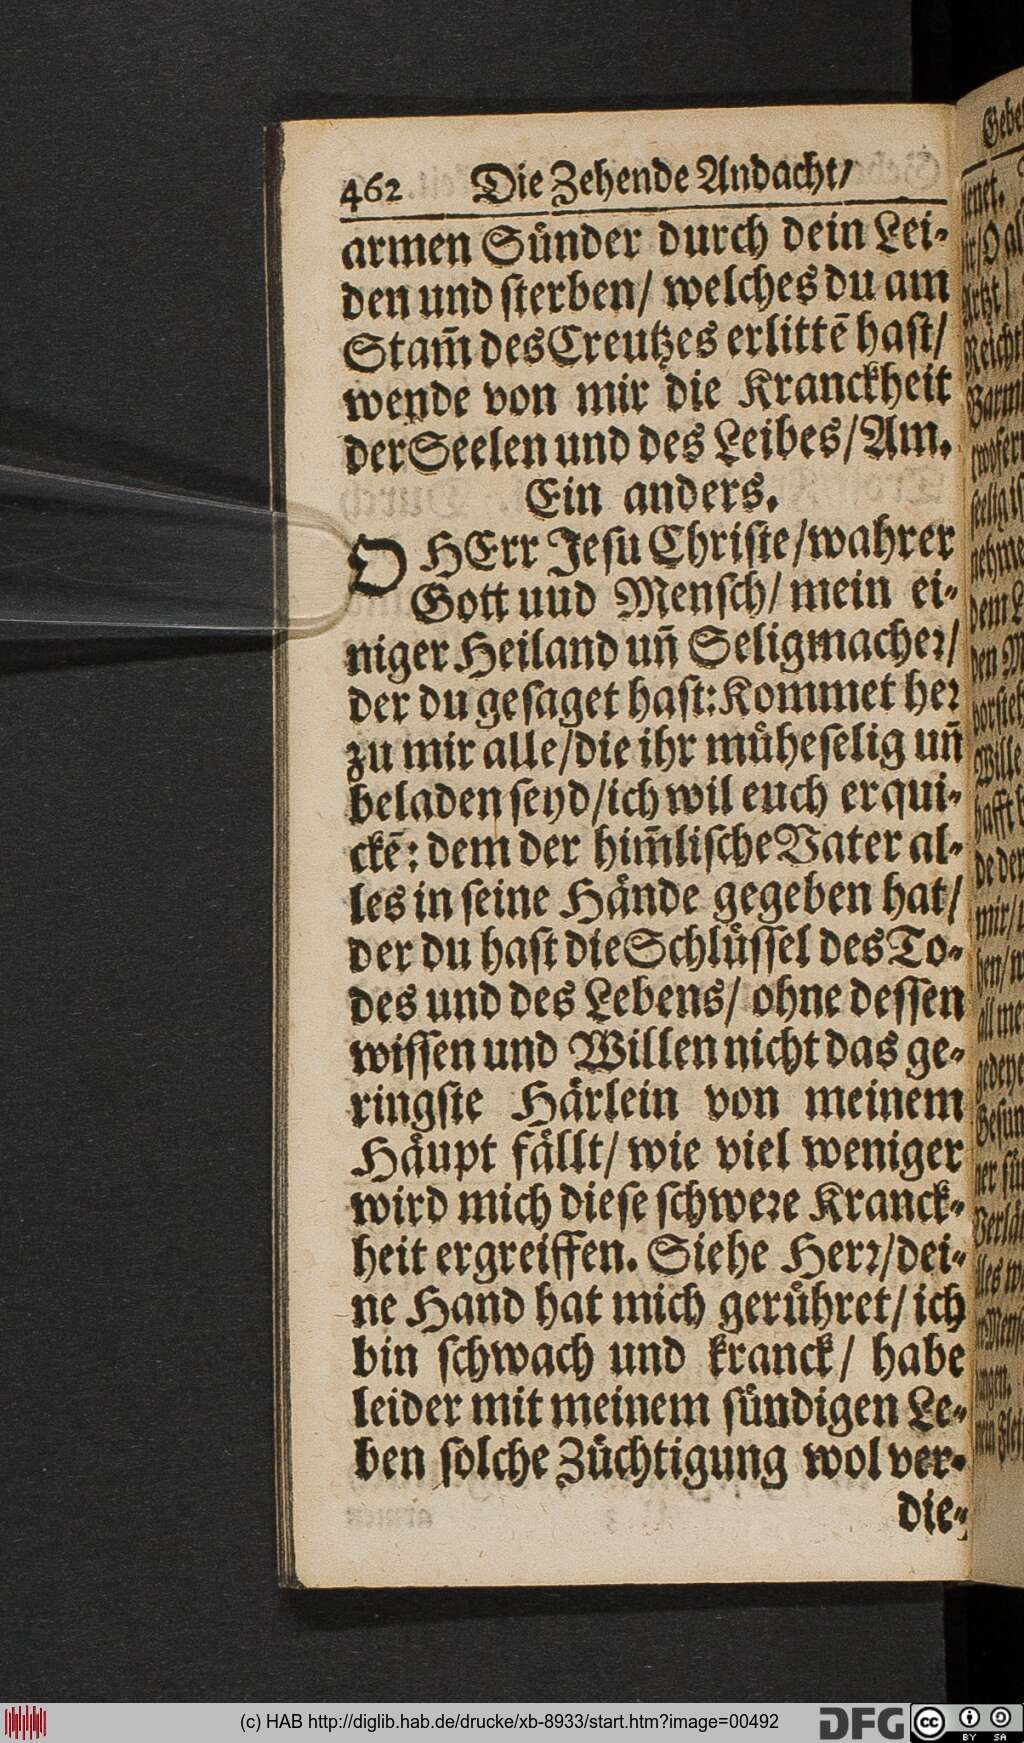 462 Die Zehende Andacht/
armen Sünder durch dein Lei-
den und sterben/ welches du am
Stam̃ des Creutzes erlittẽ hast/
wende von mir die Kranckheit
der Seelen und des Leibes/ Am.
Ein anders.
O HErr Jesu Christe/ wahrer
Gott uud Mensch/ mein ei-
niger Heiland uñ Seligmacher/
der du gesaget hast: Kommet her
zu mir alle/ die ihr müheselig uñ
beladen seyd/ ich wil euch erqui-
ckẽ: dem der him̃lische Vater al-
les in seine Hände gegeben hat/
der du hast die Schlüssel des To-
des und des Lebens/ ohne dessen
wissen und Willen nicht das ge-
ringste Härlein von meinem
Häupt fällt/ wie viel weniger
wird mich diese schwere Kranck-
heit ergreiffen. Siehe Herr/ dei-
ne Hand hat mich gerühret/ ich
bin schwach und kranck/ habe
leider mit meinem sündigen Le-
ben solche Züchtigung wol ver-
die-
(c) HAB http://diglib.hab.de/drucke/xb-8933/start.htm?image=00492
DFG
cc BY SA